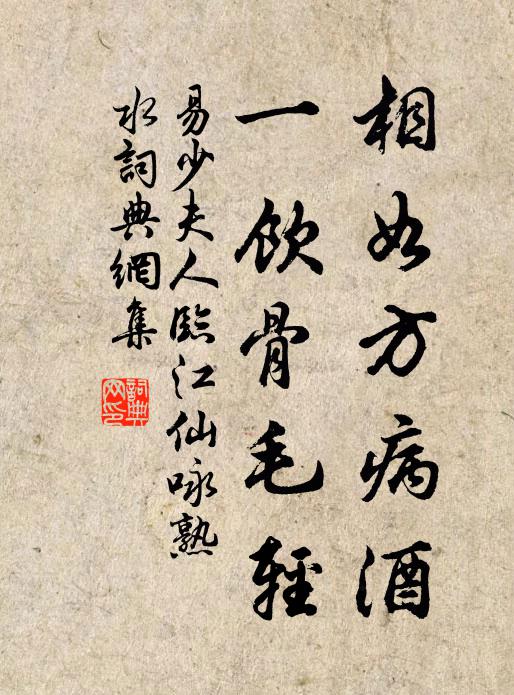 相如方病酒
一飲骨毛輕
易少夫人臨江仙咏熟
水詞典網集
詞典
网印